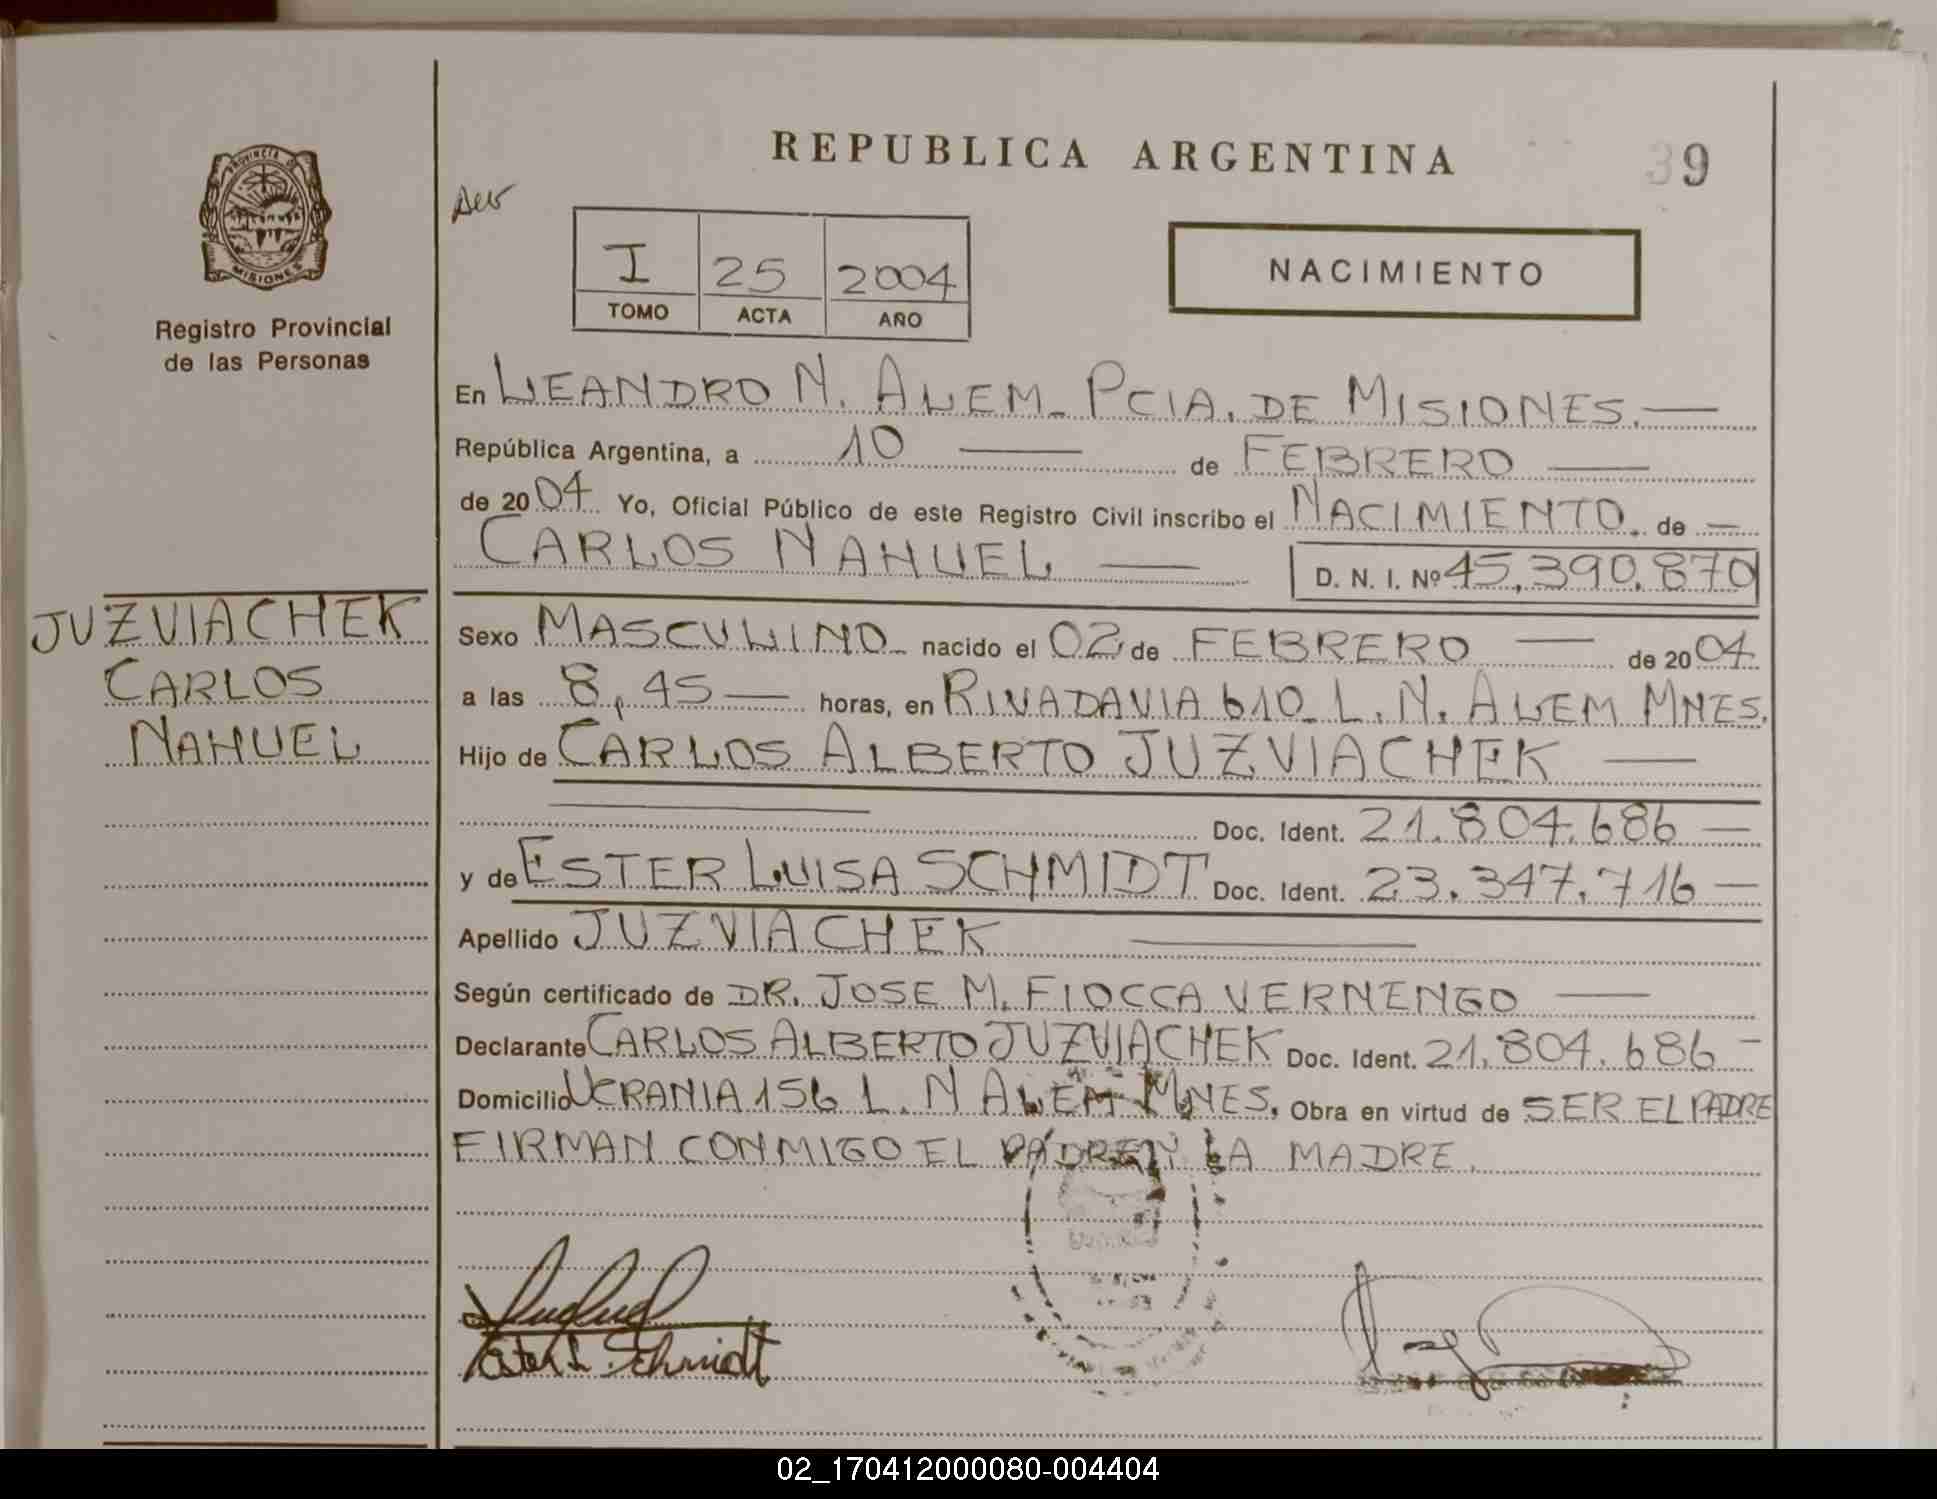 REPUBLICA ARGENTINA
39
PROVINCIA DE
MISIONES
Registro Provincial
de las Personas
I 25 2004
TOMO ACTA AÑO
NACIMIENTO
En LEANDRO N. ALEM. PCIA. DE MISIONES.
República Argentina, a 10 de FEBRERO
de 2004 Yo, Oficial Público de este Registro Civil inscribo el NACIMIENTO. de
CARLOS NAHUEL D. N. I. Nº 45.390.870
JUZVIACHEK
CARLOS
NAHUEL
Sexo MASCULINO nacido el 02 de FEBRERO de 2004
a las 8,45 horas, en RIVADAVIA 610. L. N. ALEM MNES.
Hijo de CARLOS ALBERTO JUZVIACHEK
Doc. Ident. 21.804.686
y de ESTER LUISA SCHMIDT Doc. Ident. 23.347.716
Apellido JUZVIACHEK
Según certificado de DR. JOSE M. FIOCCA VERNENGO
Declarante CARLOS ALBERTO JUZVIACHEK Doc. Ident. 21.804.686
Domicilio UCRANIA 156 L. N ALEM MNES. Obra en virtud de SER EL PADRE
FIRMAN CONMIGO EL PADRE Y LA MADRE.
Ester L. Schmidt
02_170412000080-004404